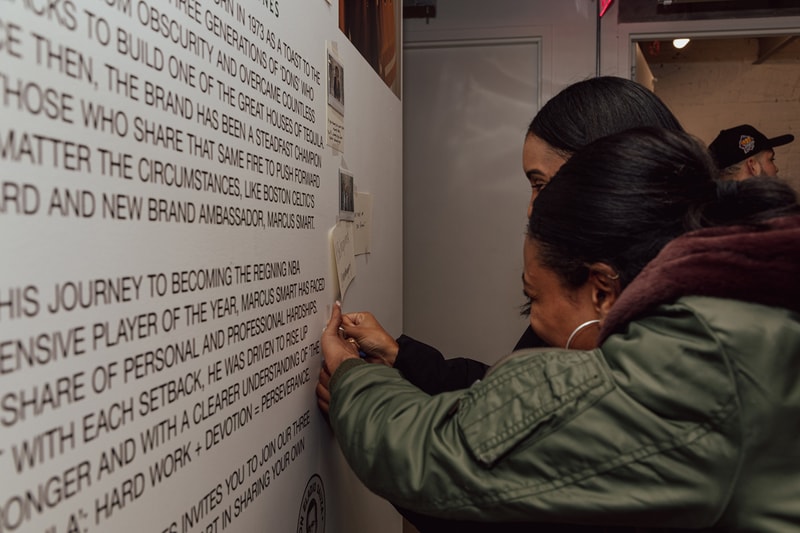 RN IN 1973 AS A TOAST TO THE
THREE GENERATIONS OF 'DONS' WHO
OM OBSCURITY AND OVERCAME COUNTLESS
ACKS TO BUILD ONE OF THE GREAT HOUSES OF TEQUILA
CE THEN, THE BRAND HAS BEEN A STEADFAST CHAMPION
THOSE WHO SHARE THAT SAME FIRE TO PUSH FORWARD
MATTER THE CIRCUMSTANCES, LIKE BOSTON CELTIC'S
ARD AND NEW BRAND AMBASSADOR, MARCUS SMART.
HIS JOURNEY TO BECOMING THE REIGNING NBA
ENSIVE PLAYER OF THE YEAR, MARCUS SMART HAS FACED
SHARE OF PERSONAL AND PROFESSIONAL HARDSHIPS.
T WITH EACH SETBACK, HE WAS DRIVEN TO RISE UP
ONGER AND WITH A CLEARER UNDERSTANDING OF 'THE
LA'; HARD WORK + DEVOTION = PERSEVERANCE
S INVITES YOU TO JOIN OUR THREE
RT IN SHARING YOUR OWN